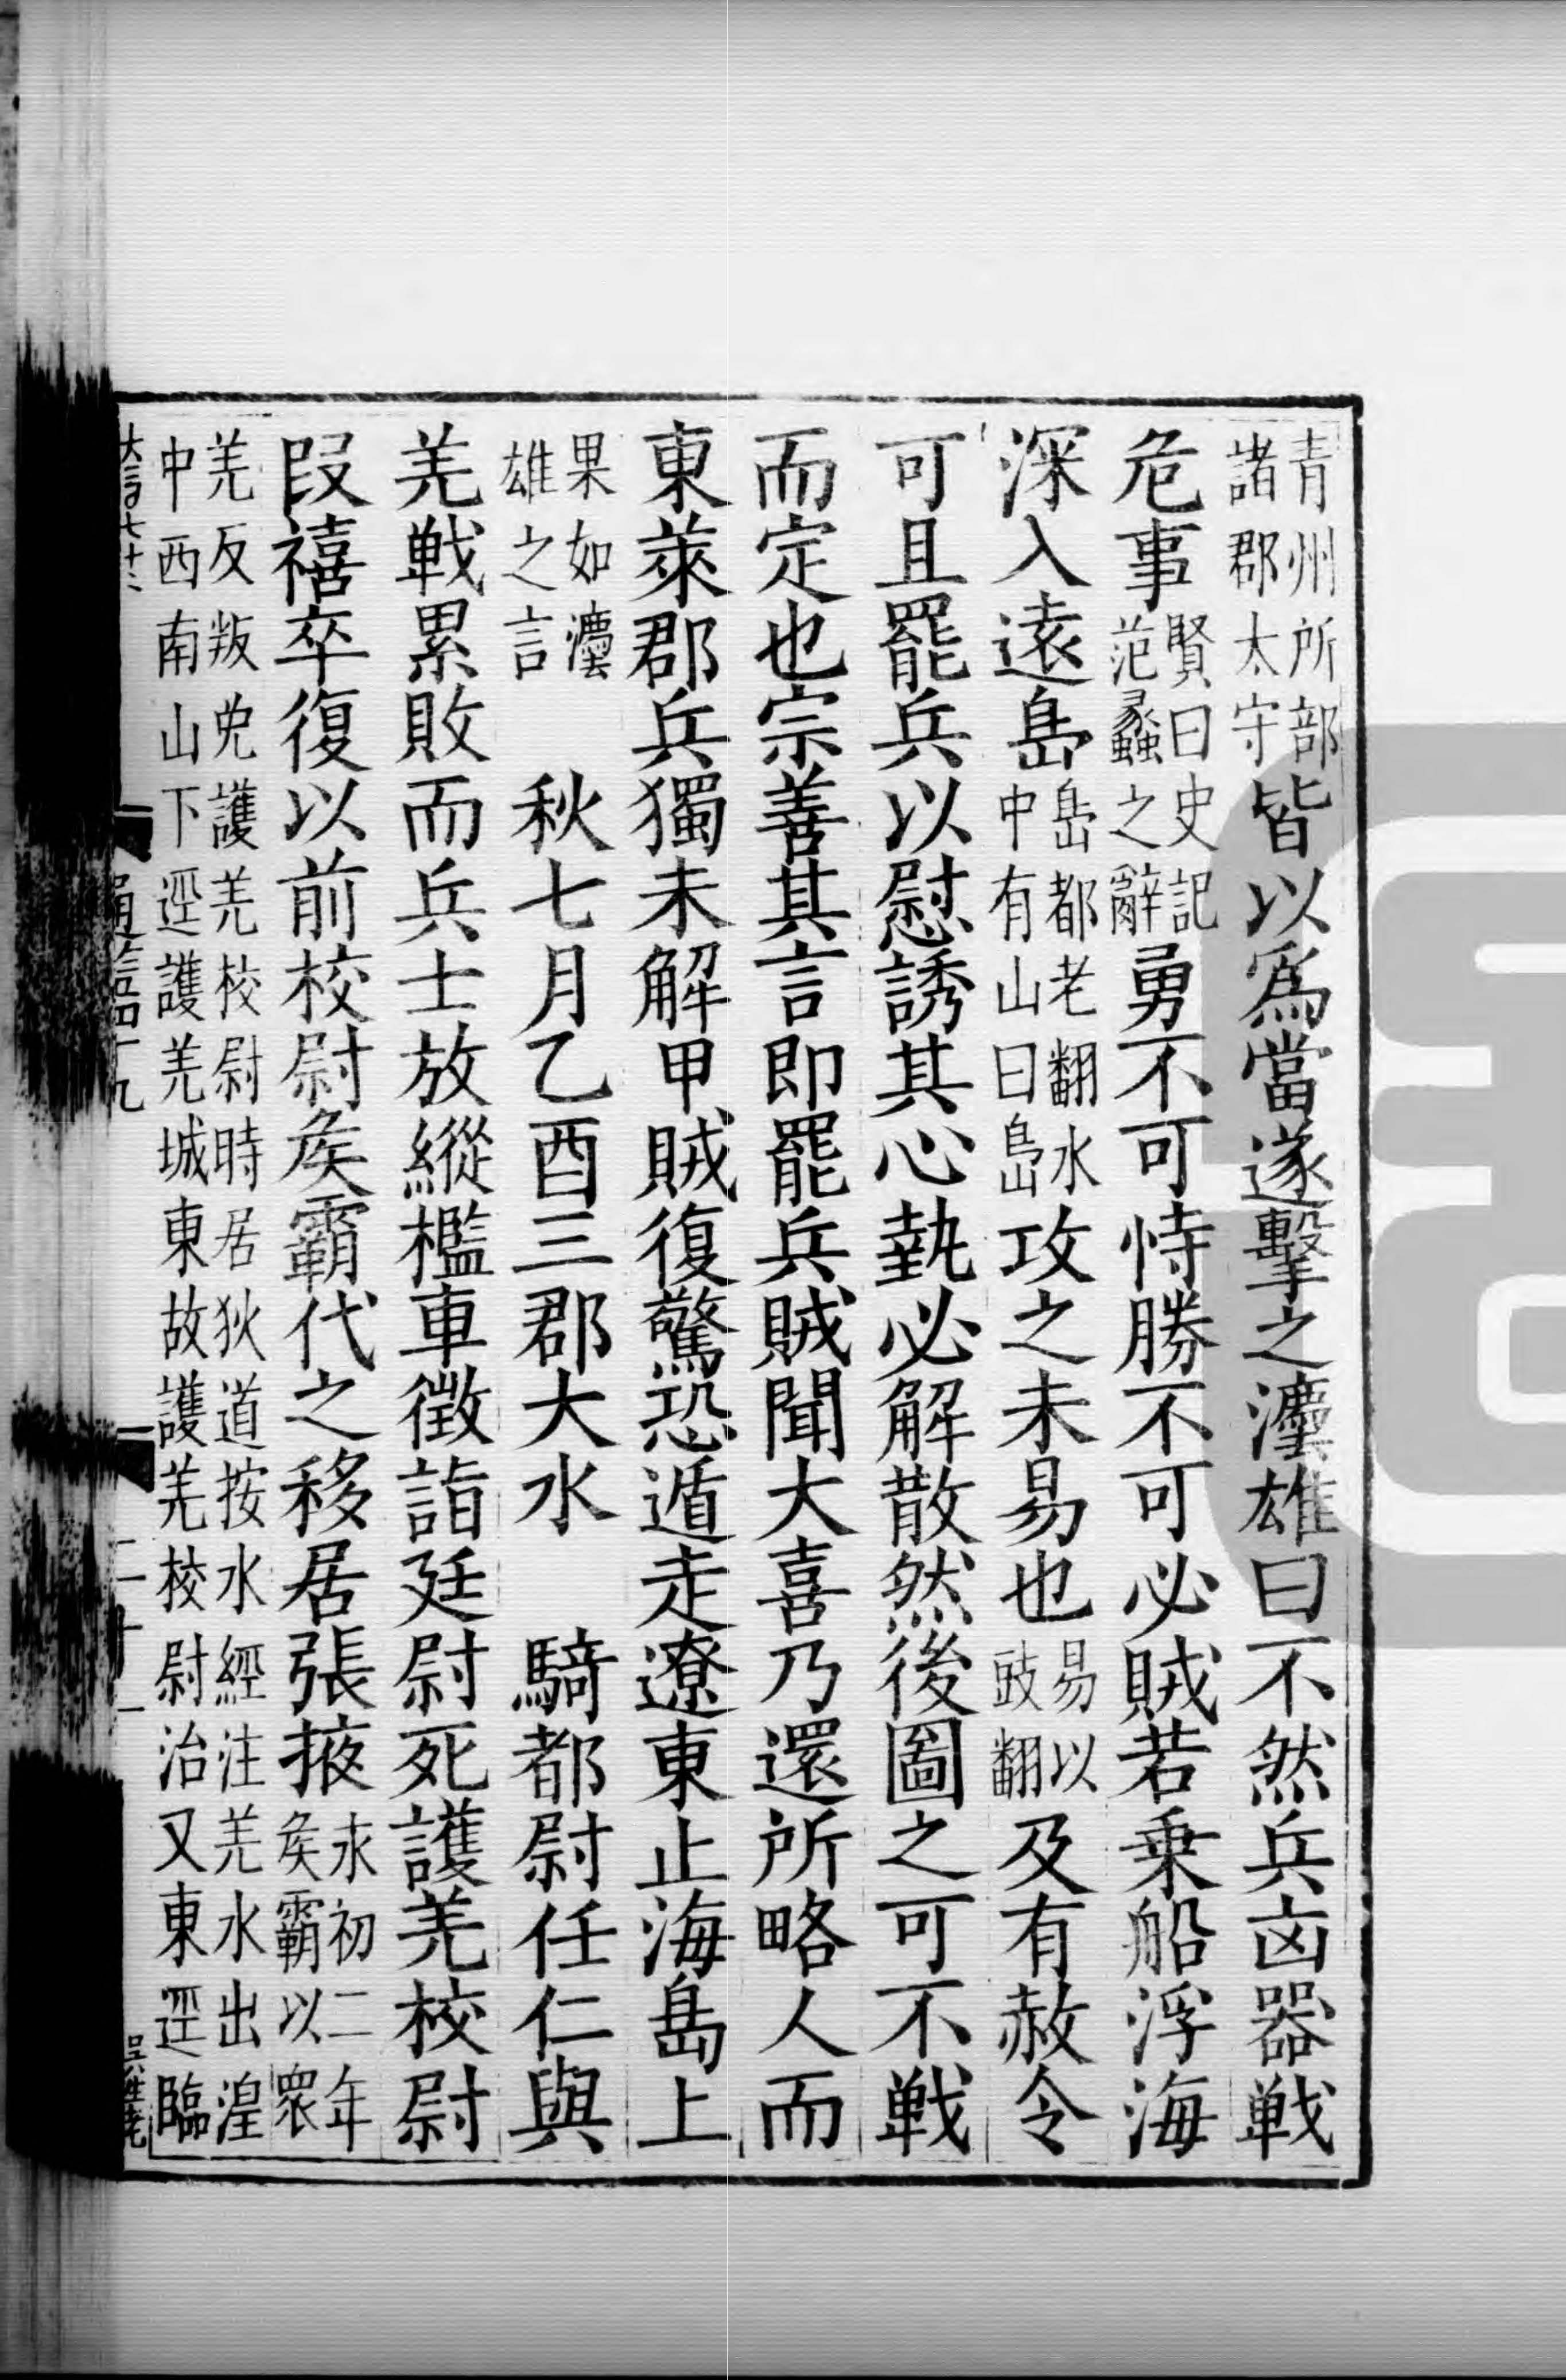 青州所部諸郡太守皆以為當遂擊之灋雄曰不然兵凶器戰
危事賢曰史記范蠡之辭勇不可恃勝不可必賊若乗船浮海
深入遠島島都老翻水中有山曰島攻之未易也易以豉翻及有赦令
可且罷兵以慰誘其心埶必解散然後圖之可不戰
而定也宗善其言即罷兵賊聞大喜乃還所略人而
東萊郡兵獨未解甲賊復驚恐遁走遼東止海島上
果如灋雄之言 秋七月乙酉三郡大水 騎都尉任仁與
羌戰累敗而兵士放縱檻車徵詣廷尉死護羌校尉
段禧卒復以前校尉矦霸代之移居張掖永初二年矦霸以衆
羌反叛免護羌校尉時居狄道按水經注羌水出湟中西南山下逕護羌城東故護羌校尉治又東逕臨